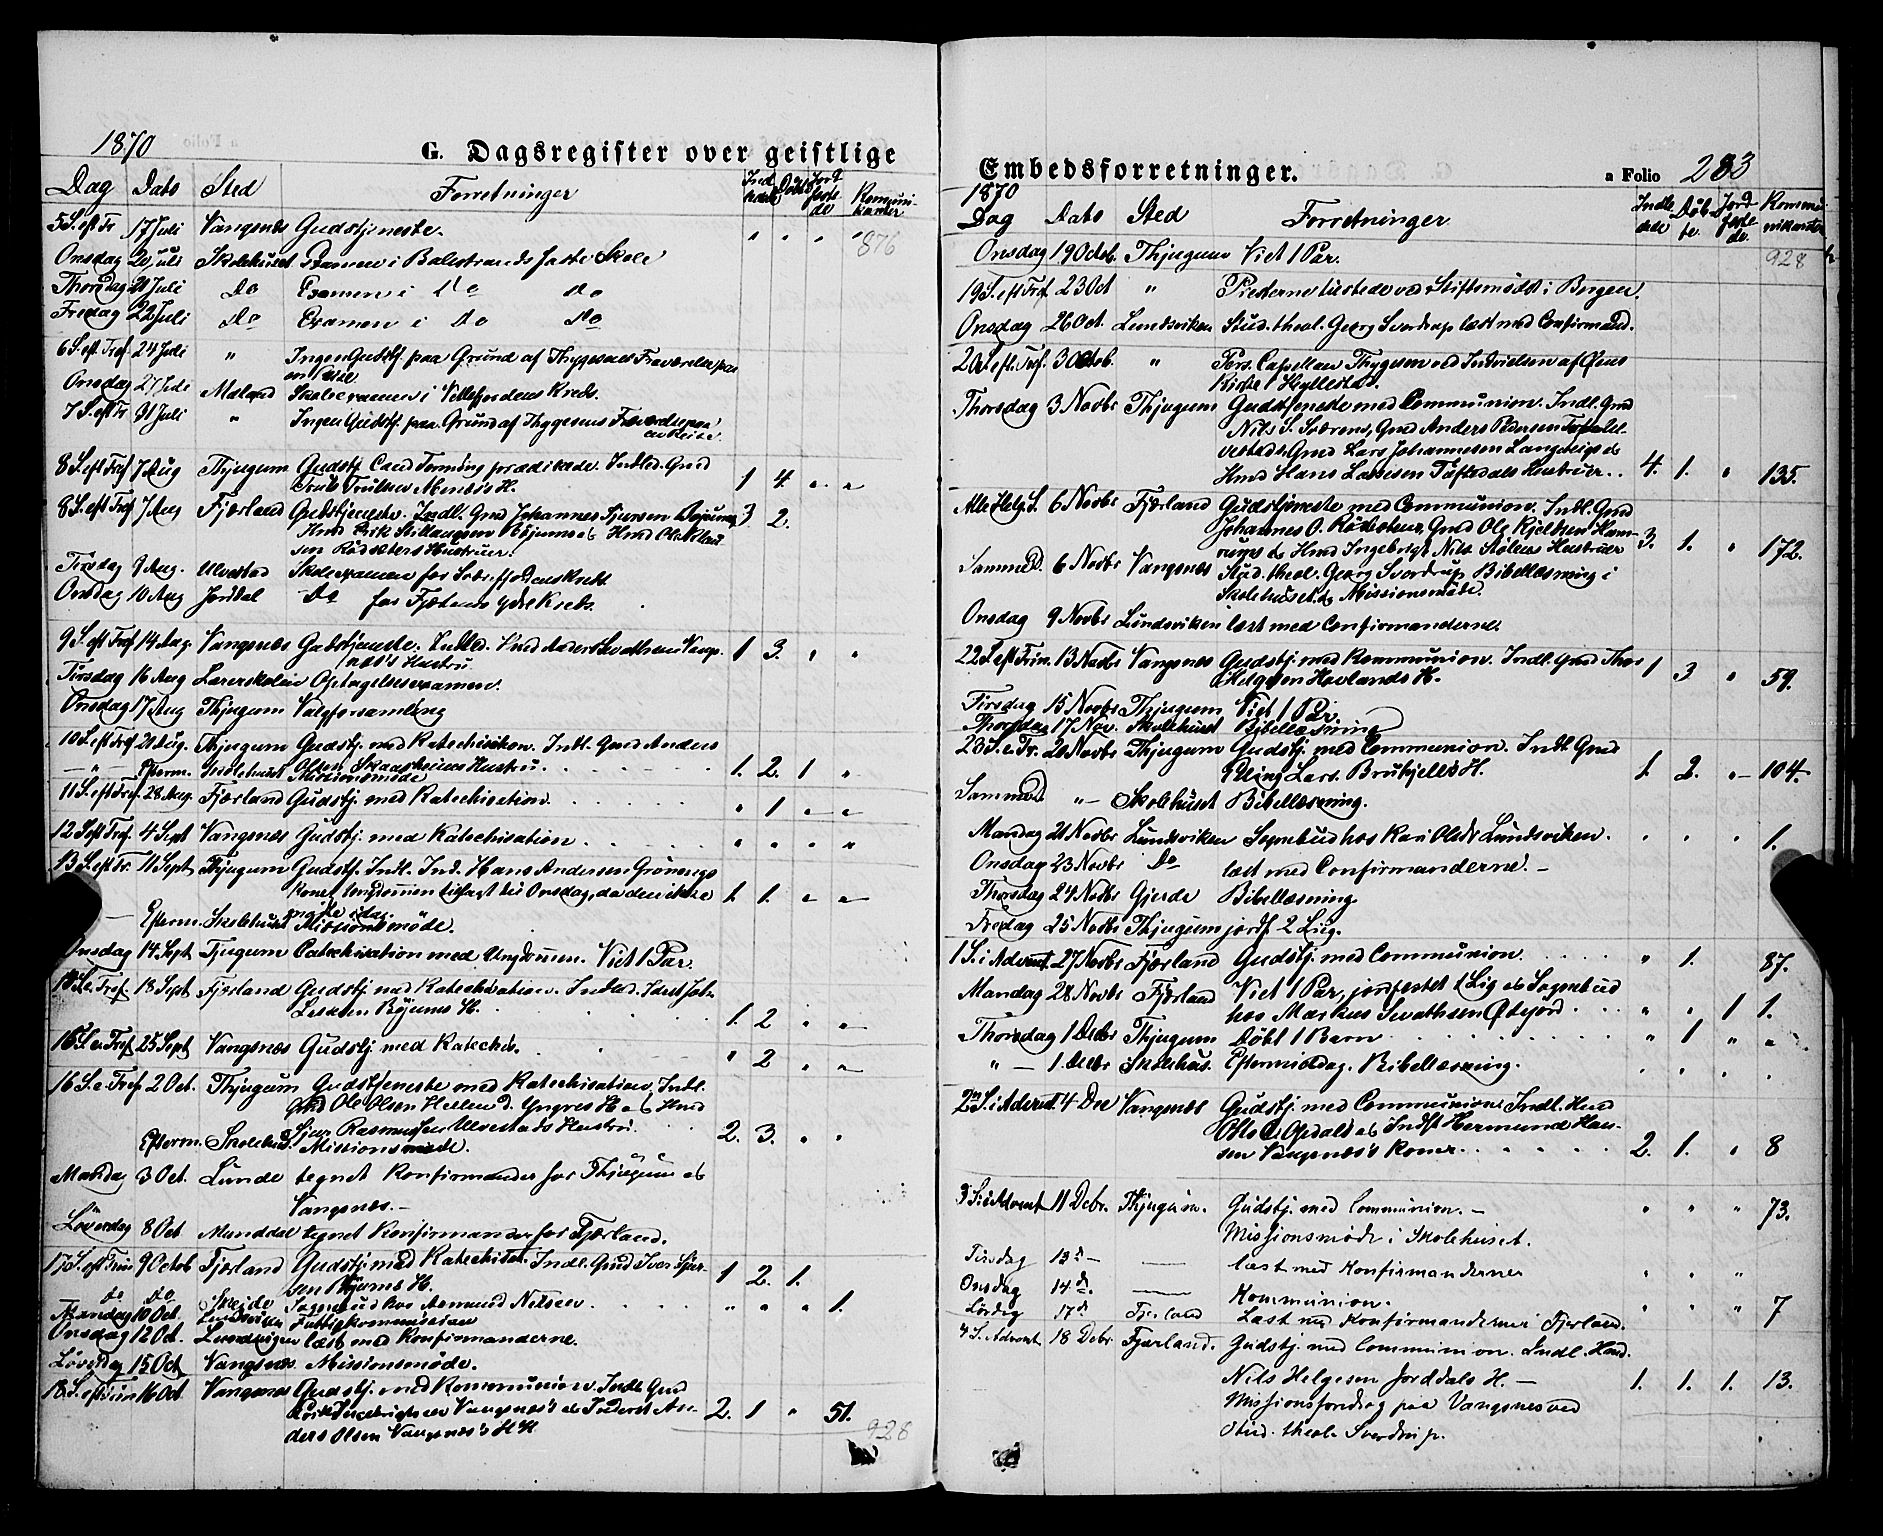 1870
G. Dagsregister over geistlige
Dag Dato Sted Forretninger Ind Døbte Jord fæste de Kommuni kanter
5 S. eft Tr 17 Juli Vangsnæs Gudstjeneste. " " " "
876
Onsdag 20 Juli Skolehuset Examen i Balestrands faste Skole
Thorsdag 21 Juli Do Examen i Do Do
Fredag 22 Juli Do Examen i Do Do
6 S. eft. Tref. 24 Juli " Ingen Gudstj. paa Grund af Thygesens Fraværelse paa
en Reise
Onsdag 27 Juli Mæland Skoleexamen i Vetlefjordens Kreds.
7 S. eft Tr. 31 Juli " Ingen Gudstj. paa Grund af Thygesens Fraværelse paa
en Reise.
8 S. eft Tref 7 Aug Thjugum Gudstj. Cand prædikede. Indled. Gmd
H. 1 4. " "
8 S. eft Tref 7 Aug Fjærland Gudstjeneste. Indl. Gmd Johannes Sjursen Bøjums, 3 2.
Hmd Erik Bøjums & Hmd Ole
sen Rødsæters Hustruer.
Tirsdag 9 Aug. Ulvestad Skoleexamen for kreds
Onsdag 10 Aug Jordal Do for ydre Kreds.
9 S. eft Tref 14 Aug. Vangsnæs Gudstjeneste. Indled. Hmd Anders Vangs- 1 3. " "
næs's Hustru
Tirsdag 16 Aug Lærerskolen Optagelsesexamen.
Onsdag 17 Aug Thjugum Valgforsamling
10 S. eft Tref. 21 Aug. Thjugum Gudstj. med Katechisation. Indl. Gmd Anders
Olsen Skaasheims Hustru. 1. 2. 1 "
— " — Efterm. Skolehuset Missionsmøde
11 S. eft Tref. 28 Aug. Fjærland Gudstj. med Katechisation. " 1 " "
12 S. eft Tref. 4 Sept Vangsnæs Gudstj. med Katechisation. " " " "
13 S. eft Tr. 11 Sept Thjugum Gudstj. Indl. Ind. Hans Andersen Grønengs
Kone. Ungdommen tilsagt til Onsdag, da den ikke 1. 1. " "
mødte idag.
— Efterm. Skolehuset Missionsmøde.
Onsdag 14 Sept Tjugum Catechisation med Ungdommen. Viet 1 Par.
14 S. e. Tref 18 Sept Fjærland Gudstj. med Katechisation. Indled.
Bøjums H. 1. 2 " "
15 S. e. Tref 25 Sept Vangsnæs Gudstj. med Katechis. " 2 " "
16 S. e. Tref 2 Oct. Thjugum Gudstjeneste med Katechisation. Indl.
Gmd Ole Olsen H & Hmd
Sjur Rasmussen Ulvestads Hustru. 2. 3. " "
Efterm. Skolehus. Missionsmøde.
Mandag 3 Oct. Lunde tegnet Konfirmander for Thjugum &
Vangsnæs.—
Løverdag 8 Oct Munddal tegnet Konfirmander for Fjærland.
17 S. eft Trin 9 Octob Fjærland Gudstj. med Katechisat. Indl. Gmd Iver Sjur-
sen Bøjums H. 1 2. 1.
do do Skejde Sognebud hos Asmund Nilsen " " " 1.
Mandag 10 Oct. Lundsviken Fattigkommission
Onsdag 12 Oct. Lundsviken læst med Konfirmanderne.
Løverdag 15 Oct Vangsnæs Missionsmøde.
18 S. eft Trin 16 Oct. Vangsnæs Gudstj. med Kommunion. Indl. Gmd
Erik Ingebrigtsen Vangsnæs's & Inderst An- 2. 1 " 51.
ders Olsen Vangsnæs's HH
928
Embedsforretninger.
a Folio 283
1870
Dag Dato Sted Forretninger Indle dede Døb te. Jord fæste de. Kommu nikanter
928
Onsdag 19 Octob. Thjugum Viet 1 Par.
19 S. eft Tref. 23 Oct " Presterne tilstede ved Stiftsmødet i Bergen.
Onsdag 26 Oct. Lundsviken Stud. theol. Georg Sverdrup læst med Confirmand.
20 S. eft. Tref. 30 Octob. " Pers. Capellan Thygesen ved Indvielsen af Øens
Kirke i Hyllestad.
Thorsdag 3 Novbr Thjugum Gudstjeneste med Communion. Indl. Gmd
Nils S. Sværens, Gmd Anders Pedersen
vestads, Gmd Lars Johannesen &
Hmd Hans Larssen Tuftedals Hustruer. 4. 1. " 135.
Alle Helg. S. 6 Novbr Fjærland Gudstjeneste med Communion. Indl. Gmd
Johannes O. Rødsæters, Gmd Ole Kjeldsen Ham-
rums & Hmd Ingebrigt Nils. Stølens Hustruer 3. 1. " 172.
Sammed. 6 Novbr Vangsnæs Stud. theol. Georg Sverdrup Bibellæsning i
Skolehuset. & Missionsmøde.
Onsdag 9 Novbr Lundsviken læst med Confirmanderne.
22 S. eft Trin. 13 Novbr Vangsnæs Gudstj. med Kommunion. Indl. Gmd Thor
Helgesen Hovlands H. 1 3 " 59.
Tirsdag 15 Novbr Thjugum Viet 1 Par.
Thorsdag 17 Nov. Skolehuset Bibellæsning
23 S. e. Tr. 20 Novbr Thjugum Gudstj. med Communion. Indl. Gmd
Lars. Brubjells H. 1. 2. " 104.
Sammed. " — Skolehuset Bibellæsning.
Mandag 21 Novbr Lundsviken Sognebud hos Kari Olsdr Lundsviken. " " " 1.
Onsdag 23 Novbr Do læst med Confirmanderne. —
Thorsdag 24 Novbr Gjerde Bibellæsning
Fredag 25 Novbr Thjugum jordf. 2 Lig.
1 S. i Advent. 27 Novbr Fjærland Gudstj. med Communion. " 1. 87.
Mandag 28 Novbr Fjærland Viet 1 Par, jordfæstet 1 Lig & Sognebud
hos Markus " " 1 1.
Thorsdag 1 Decbr Thjugum Døbt 1 Barn " 1 " "
" — 1 Decbr Skolehus. Eftermiddag. Bibellæsning. " " " "
2n S. i Advent. 4 Dec Vangsnæs Gudstj. med Communion. Indl. Hmd
Opdals & Indst Hermund Han-
sen Vangsnæs's Koner. 2. 1. " 8
3 S. i Advent 11 Decbr. Thjugum. Gudstj. med Communion.— " " " 73.
Missionsmøde i Skolehuset.
Tirsdag 13d — — læst med Konfirmanderner " " "
Onsdag 14d. — Kommunion. " " " 7
Lördag 17d Fjerland Læst med Konfirmanderne i Fjerland.
4 S. Advent 18 Debr. Fjærland. Gudstj. med Communion. Indl. Hmd.
Nils Helgesen Jorddals H. — 1. 1. 1. 13.
Missionsforedrag paa Vangsnes ved
Stud. theol. Sverdrup.